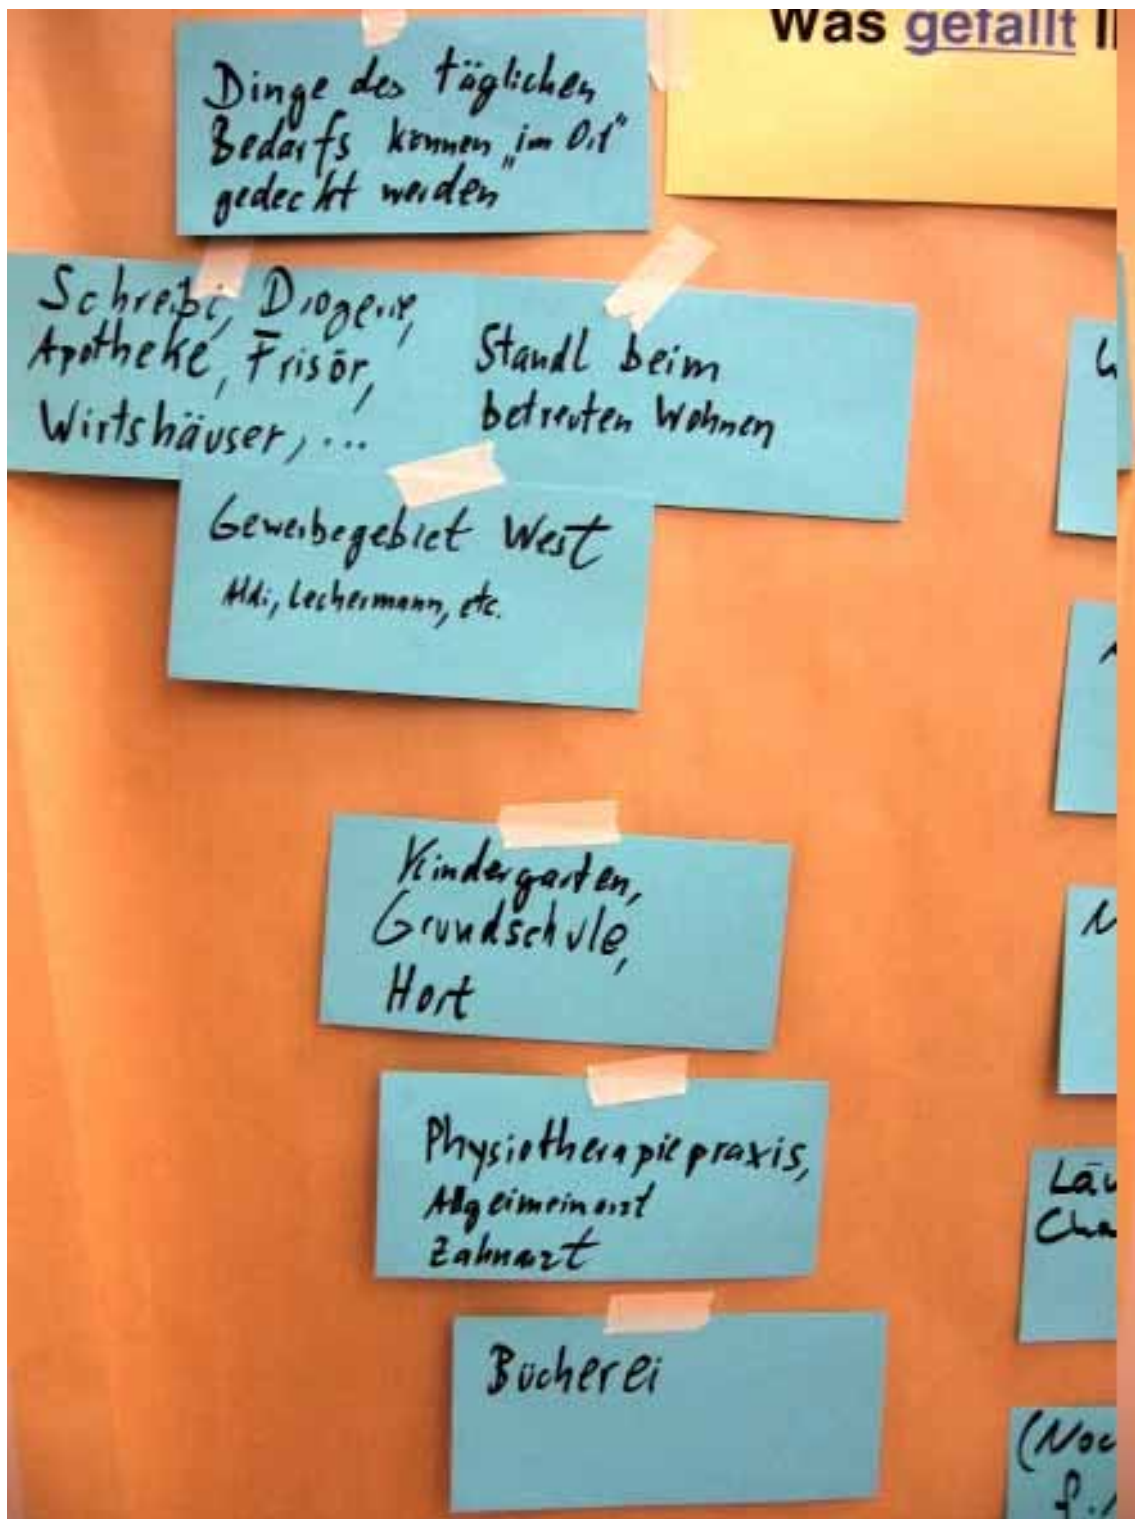 Was gefällt
Dinge des täglichen
Bedarfs können „im Ort"
gedeckt werden
Schreibi, Drogerie,
Apotheke, Frisör,
Wirtshäuser, ...
Standl beim
betreuten Wohnen
Gewerbegebiet West
Aldi, Lechermann, etc.
Kindergarten,
Grundschule,
Hort
Physiotherapiepraxis,
Allgeimeinarzt
Zahnarzt
Bücherei